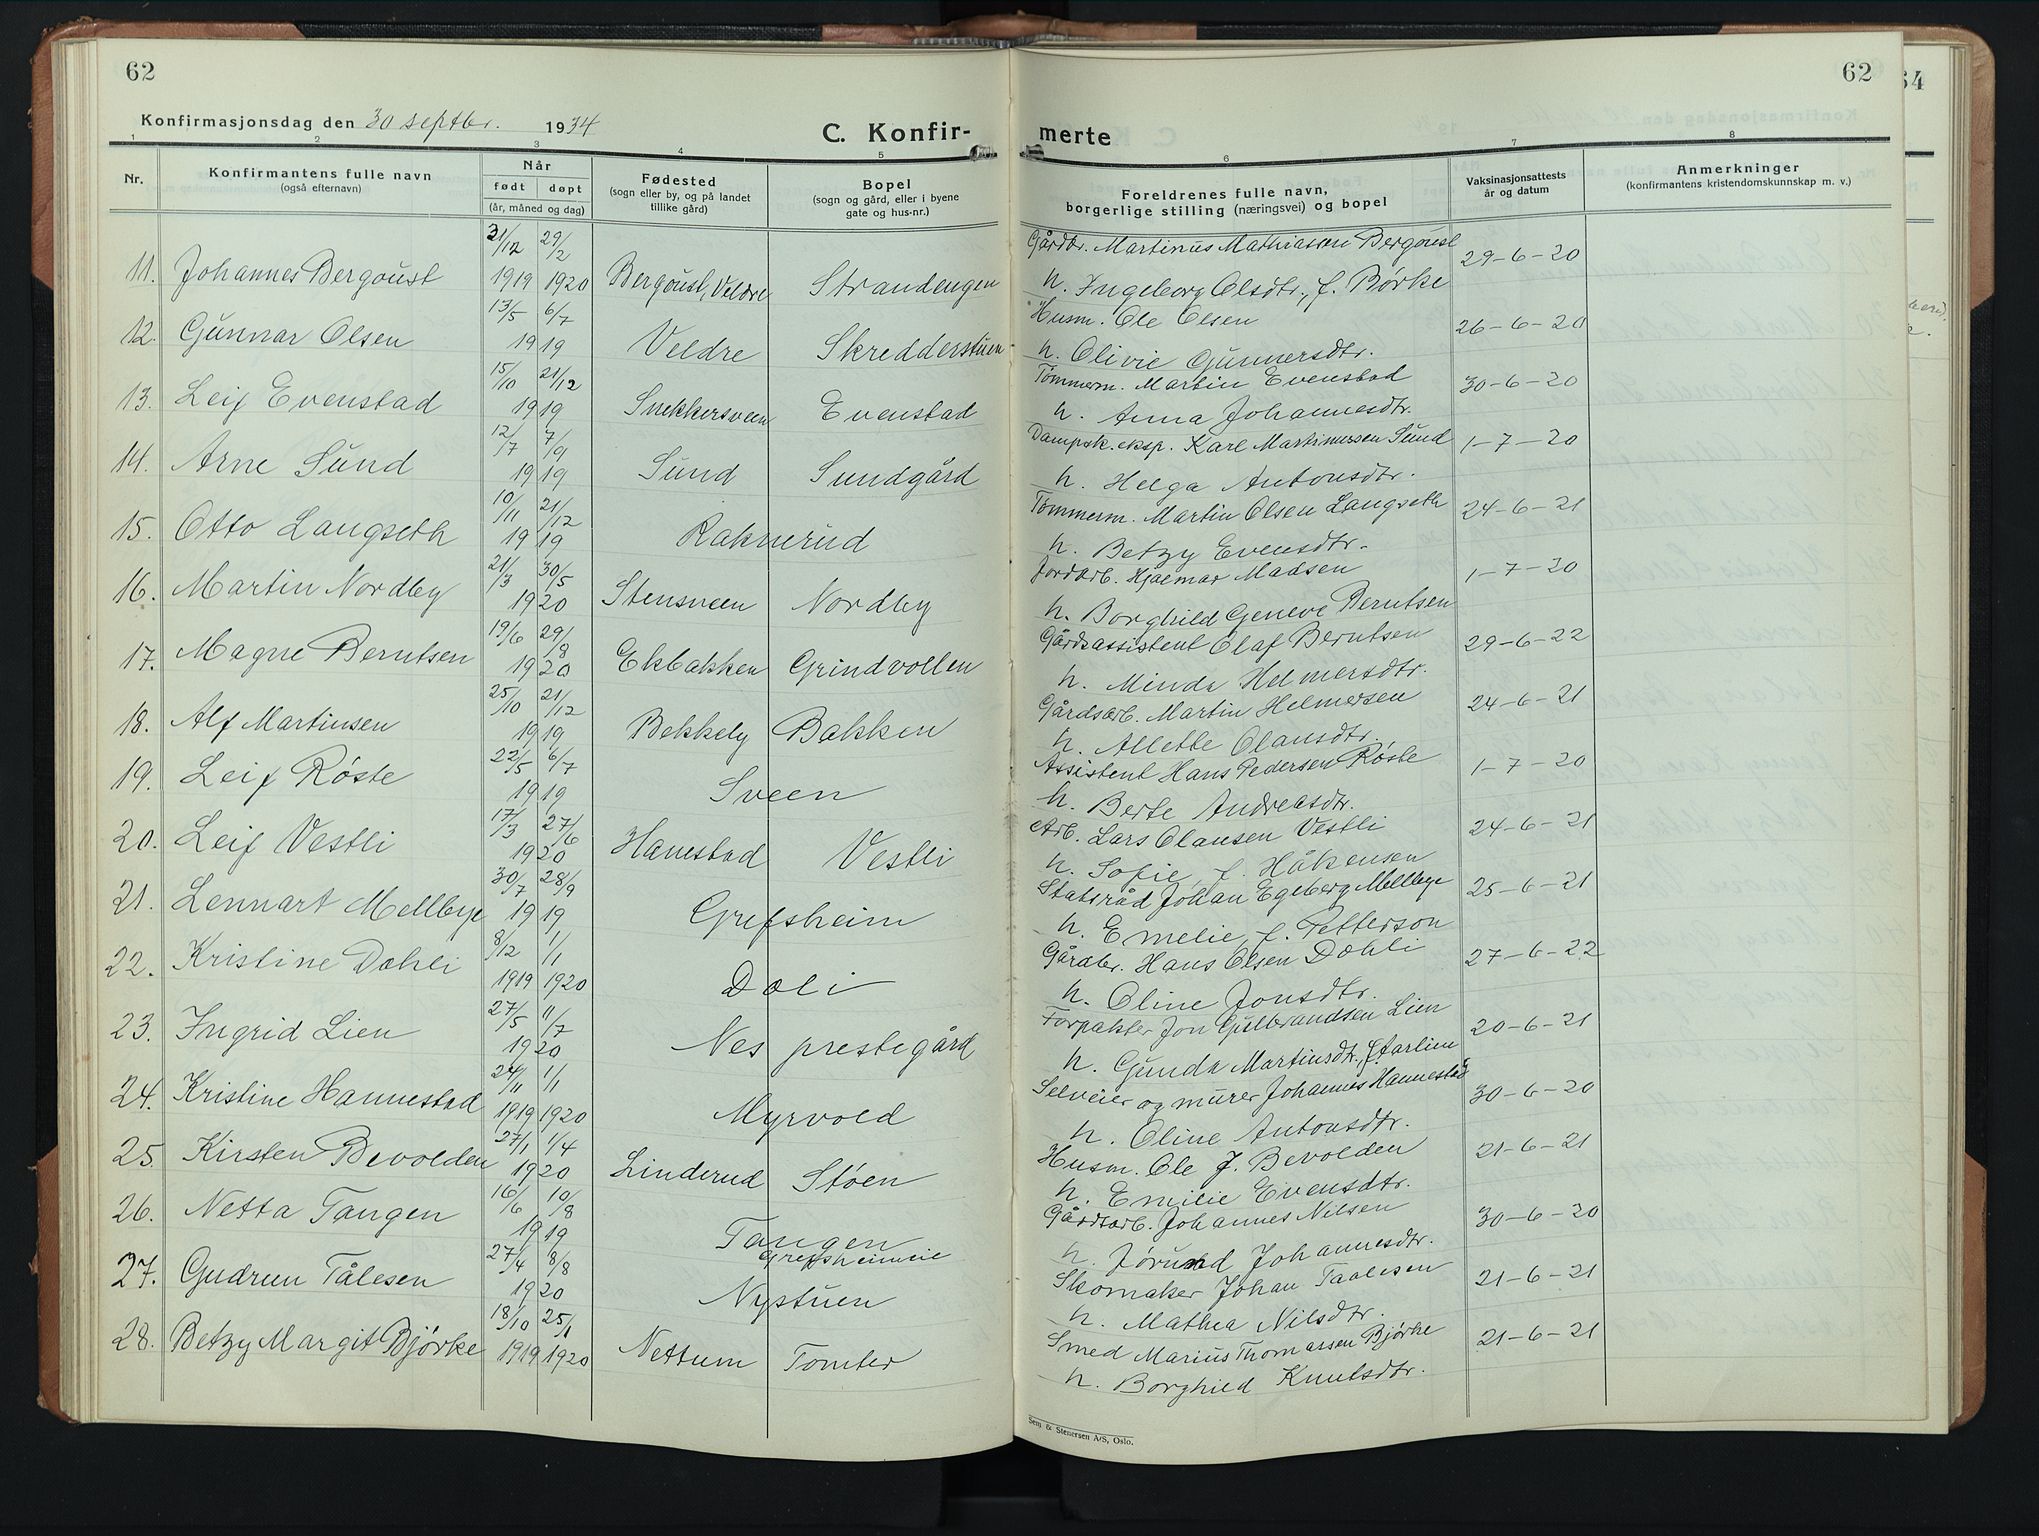 62
Konfirmasjonsdag den 30 septbr. 1934
C. Konfir-
1 2 3 4 5
Nr.
Konfirmantens fulle navn
(også efternavn)
Når
født døpt
(år, måned og dag)
Fødested
(sogn eller by, og på landet
tillike gård)
Bopel
(sogn og gård, eller i byene
gate og hus-nr.)
21/12 29/2
11. Johannes Bergoust 1919 1920 Bergoust, Veldre Strandengen
13/5 6/7
12. Gunnar Olsen 1919 Veldre Skredderstuen
15/10 21/12
13. Leif Evenstad 1919 Snekkersveen Evenstad
12/7 7/9
14. Arne Sund 1919 Sund Sundgård
10/11 21/12
15. Otto Langseth 1919 Raknerud
21/3 30/5
16. Martin Nordby 1920 Stensveen Nordby
19/6 29/8
17. Magne Berntsen 1920 Ekbakken Grindvollen
25/10 21/12
18. Alf Martinsen 1919 Bekkely Bakken
22/5 6/7
19. Leif Røste 1919 Sveen
17/3 27/6
20. Leif Vestli 1920 Hanestad Vestli
30/7 28/9
21. Lennart Mellbye 1919 Grefsheim
8/12 1/1
22. Kristine Dæhli 1919 1920 Dæli
27/5 11/7
23. Ingrid Lien 1920 Nes prestegård
24/11 1/1
24. Kristine Hannestad 1919 1920 Myrvold
27/1 1/4
25. Kirsten Bevolden 1920 Linderud Støen
16/6 10/8
26. Netta Tangen 1919 Tangen
27/4 8/8 Grefsheimeie
27. Gudrun Tålesen 1920 Nystuen
18/10 25/1
28. Betzy Margit Bjørke 1919 1920 Nettum Tomter
62
merte
6 7 8
Foreldrenes fulle navn,
borgerlige stilling (næringsvei) og bopel
Vaksinasjonsattests
år og datum
Anmerkninger
(konfirmantens kristendomskunnskap m. v.)
Gårdbr. Martinus Mathiassen Bergoust 29-6-20
h. Ingeborg Olsdtr., f. Børke
Husm. Ole Olsen 26-6-20
h. Olivie Gunnersdtr.
Tømmerm. Martin Evenstad 30-6-20
h. Anna Johannesdtr.
Dampsk.eksp. Karl Martinussen Sund 1-7-20
h. Helga Antonsdtr.
Tømmerm. Martin Olsen Langseth 24-6-21
h. Betzy Evensdtr.
Jordarb. Hjalmar Madsen 1-7-20
h. Borghild Geneve Berntsen
Gårdsassistent Olaf Berntsen 29-6-22
h. Minda Helmersdtr.
Gårdsarb. Martin Helmersen 24-6-21
h. Allette Olausdtr.
Assistent Hans Pedersen Røste 1-7-20
h. Berte Andreasdtr.
Arb. Lars Olausen Vestli 24-6-21
h. Sofie, f. Håkensen
Statsråd Johan Egeberg Mellbye 25-6-21
h. Emelie, f. Petterson
Gårdbr. Hans Olsen Dæhli 27-6-22
h. Oline Jonsdtr.
Forpakter Jon Gulbrandsen Lien 20-6-21
h. Gunda Martinsdtr.
Selveier og murer Johannes Hannestad 30-6-20
h. Oline Antonsdtr.
Husm. Ole J. Bevolden 21-6-21
h. Emilie Evensdtr.
Gårdsarb. Johannes Nilsen 30-6-20
h. Jørund Johannesdtr.
Skomaker Johan Taalesen 21-6-21
h. Mathea Nilsdtr.
Smed Marius Thomassen Bjørke 21-6-21
h. Borghild Knutsdtr.
Sem & Stenersen A/S, Oslo.
64